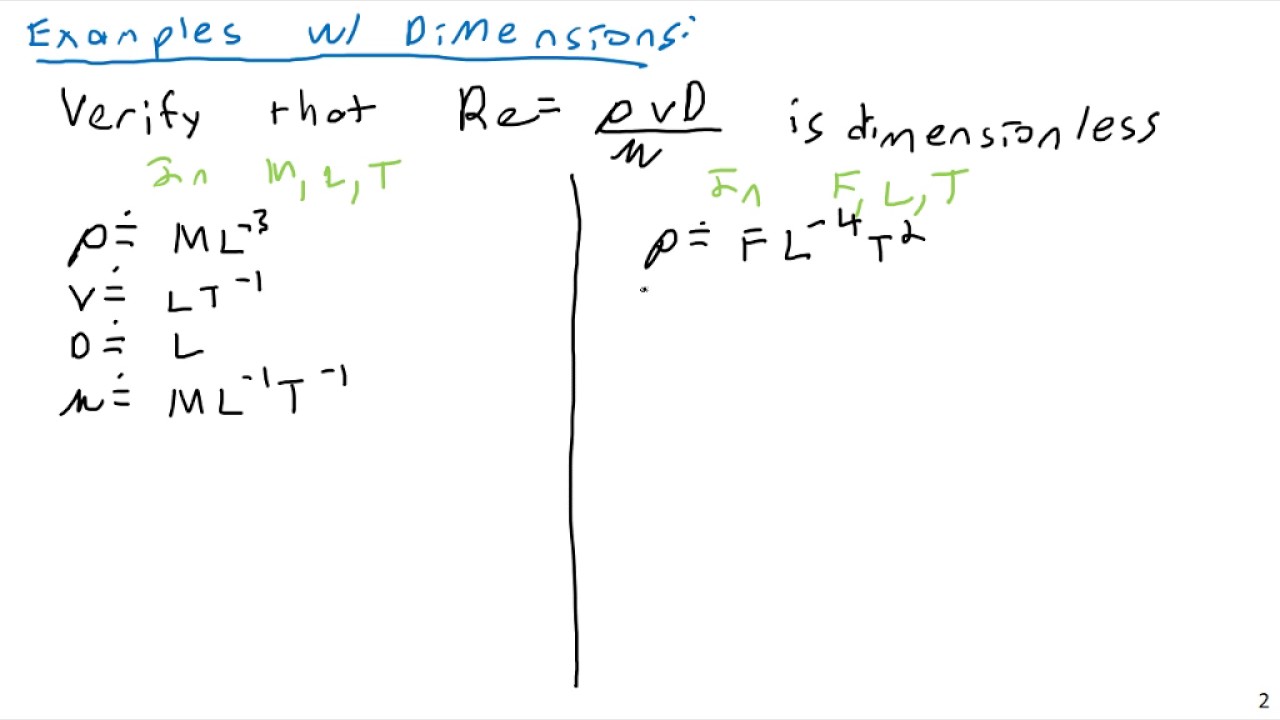 Examples w/ Dimensions:
Verify that Re = ρvD/μ is dimensionless
In M, L, T
ρ ≐ ML⁻³
v ≐ LT⁻¹
D ≐ L
μ ≐ ML⁻¹T⁻¹
In F, L, T
ρ ≐ FL⁻⁴T²
2